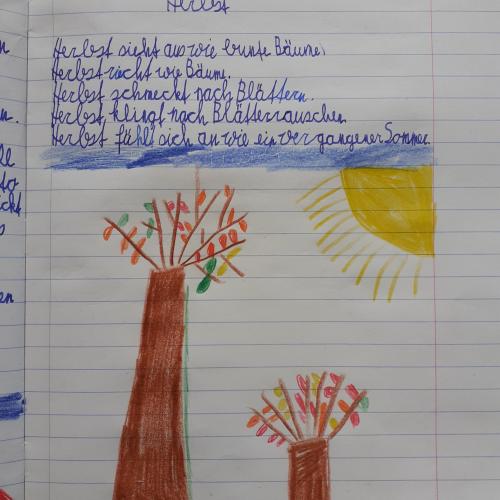 Herbst
Herbst sieht aus wie bunte Bäume.
Herbst riecht wie Bäume.
Herbst schmeckt nach Blättern.
Herbst klingt nach Blätterrauschen.
Herbst fühlt sich an wie ein vergangener Sommer.